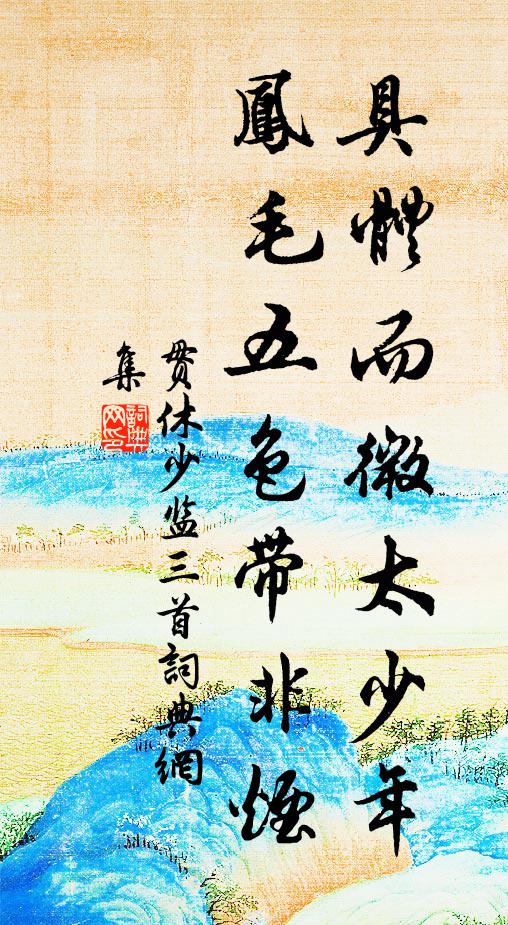 具體而微太少年
鳳毛五色帶非煙
貫休少监三首詞典網
集
詞典網印